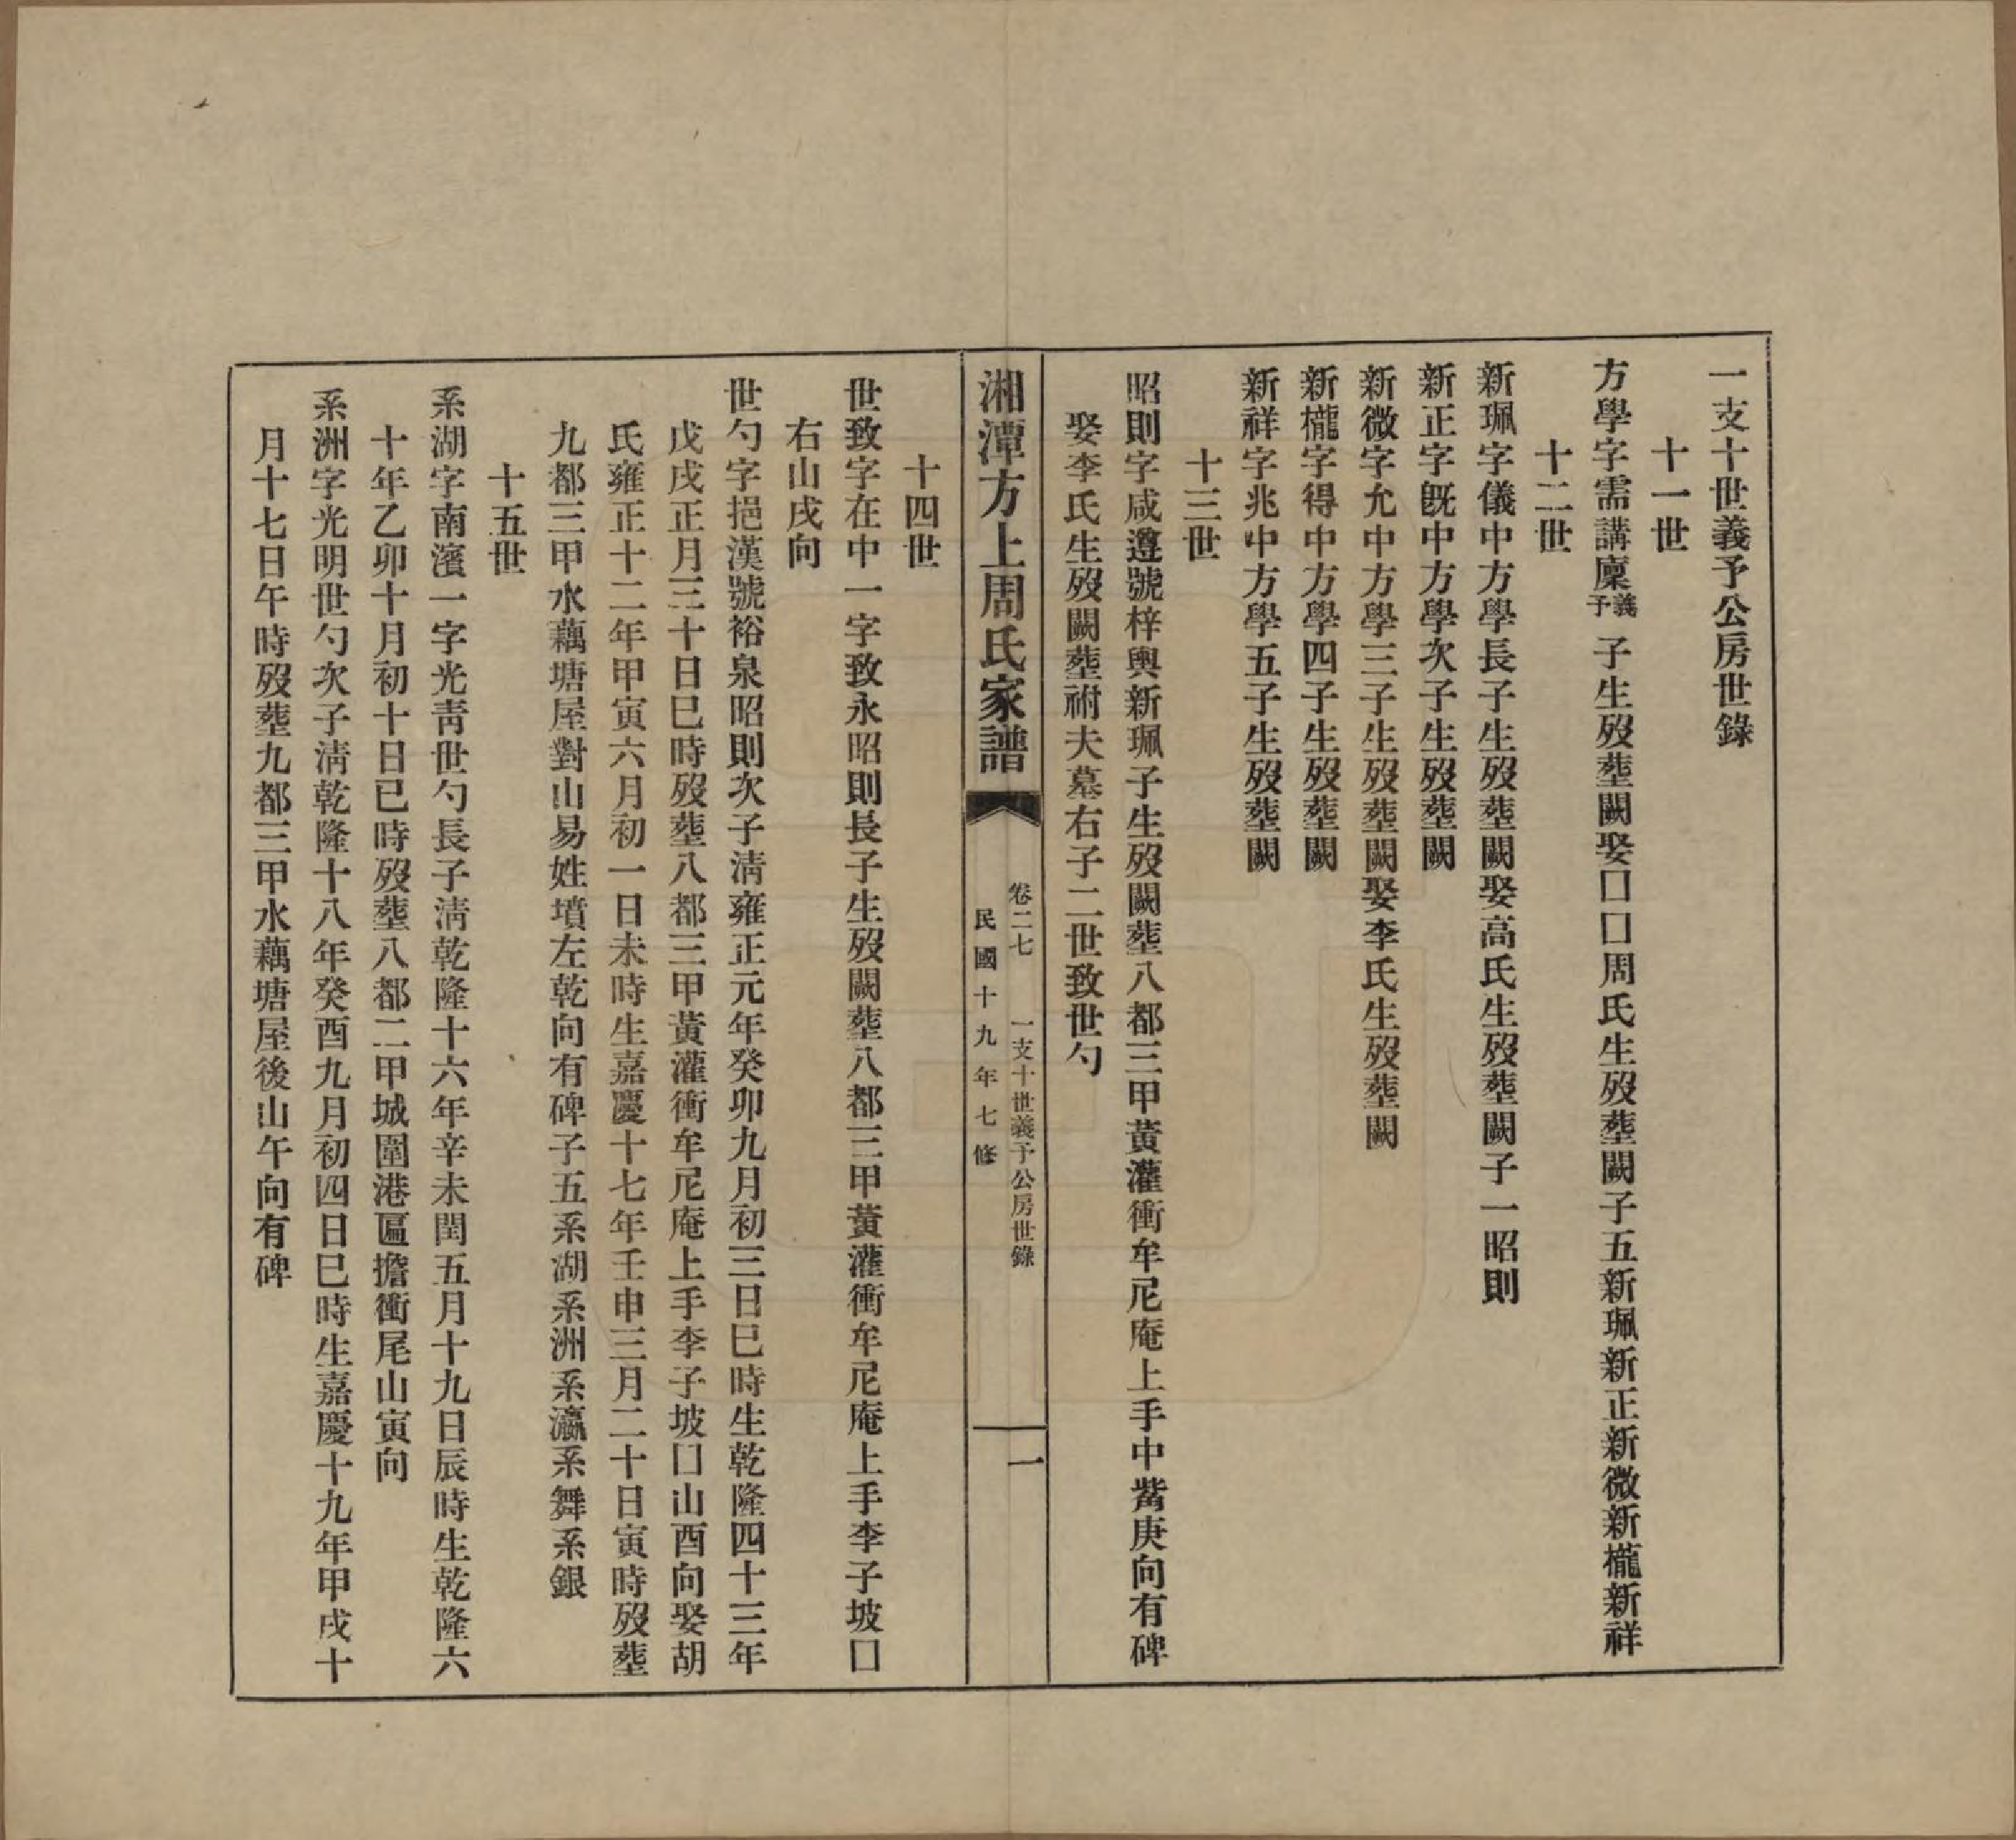 一支十世義予公房世錄
十一世
方學字需講廩義予子生歿塟闕娶囗囗周氏生歿塟闕子五新珮新正新微新櫳新祥
十二世
新珮字儀中方學長子生歿塟闕娶高氏生歿塟闕子一昭則
新正字旣中方學次子生歿塟闕
新微字允中方學三子生歿塟闕娶李氏生歿塟闕
新櫳字得中方學四子生歿塟闕
新祥字兆中方學五子生歿塟闕
十三世
昭則字咸遵號梓輿新珮子生歿闕塟八都三甲黃灌衝牟尼庵上手中觜庚向有碑
娶李氏生歿闕塟祔夫墓右子二世致世勺
湘潭方上周氏家譜
卷二七 一支十世義予公房世錄 一
民國十九年七修
十四世
世致字在中一字致永昭則長子生歿闕塟八都三甲黃灌衝牟尼庵上手李子坡囗
右山戌向
世勺字挹漢號裕泉昭則次子淸雍正元年癸卯九月初三日巳時生乾隆四十三年
戊戌正月三十日巳時歿塟八都三甲黃灌衝牟尼庵上手李子坡囗山酉向娶胡
氏雍正十二年甲寅六月初一日未時生嘉慶十七年壬申三月二十日寅時歿塟
九都三甲水藕塘屋對山易姓墳左乾向有碑子五系湖系洲系瀛系舞系銀
十五世
系湖字南濱一字光靑世勺長子淸乾隆十六年辛未閏五月十九日辰時生乾隆六
十年乙卯十月初十日巳時歿塟八都二甲城圍港匾擔衝尾山寅向
系洲字光明世勺次子淸乾隆十八年癸酉九月初四日巳時生嘉慶十九年甲戌十
月十七日午時歿塟九都三甲水藕塘屋後山午向有碑